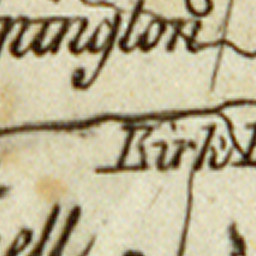 nington
Kirk
ell